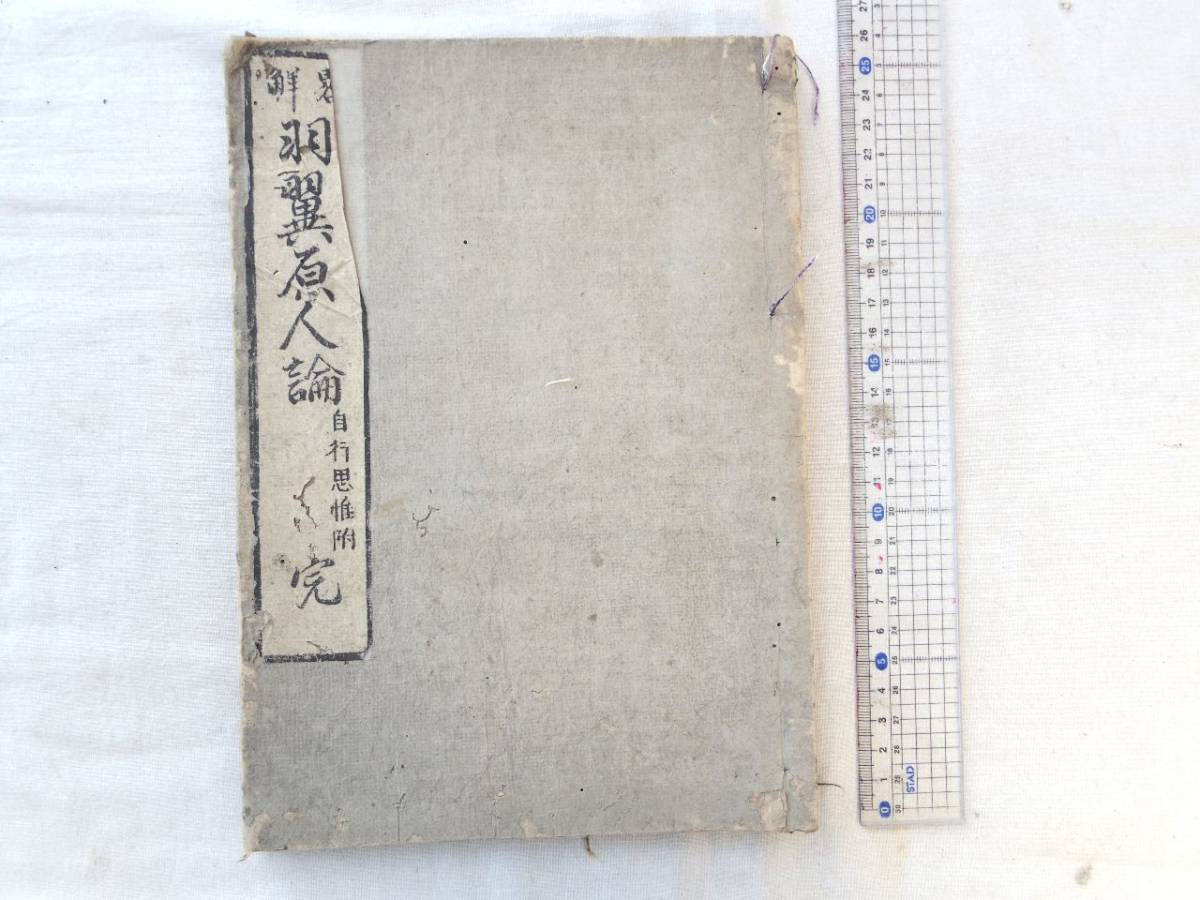 畧觧
羽翼原人論
自行思惟附
完
27
26
25
24
23
22
21
20
19
18
17
16
15
14
13
12
11
10
9
8
7
6
5
4
3
2
1
0
STAD
30